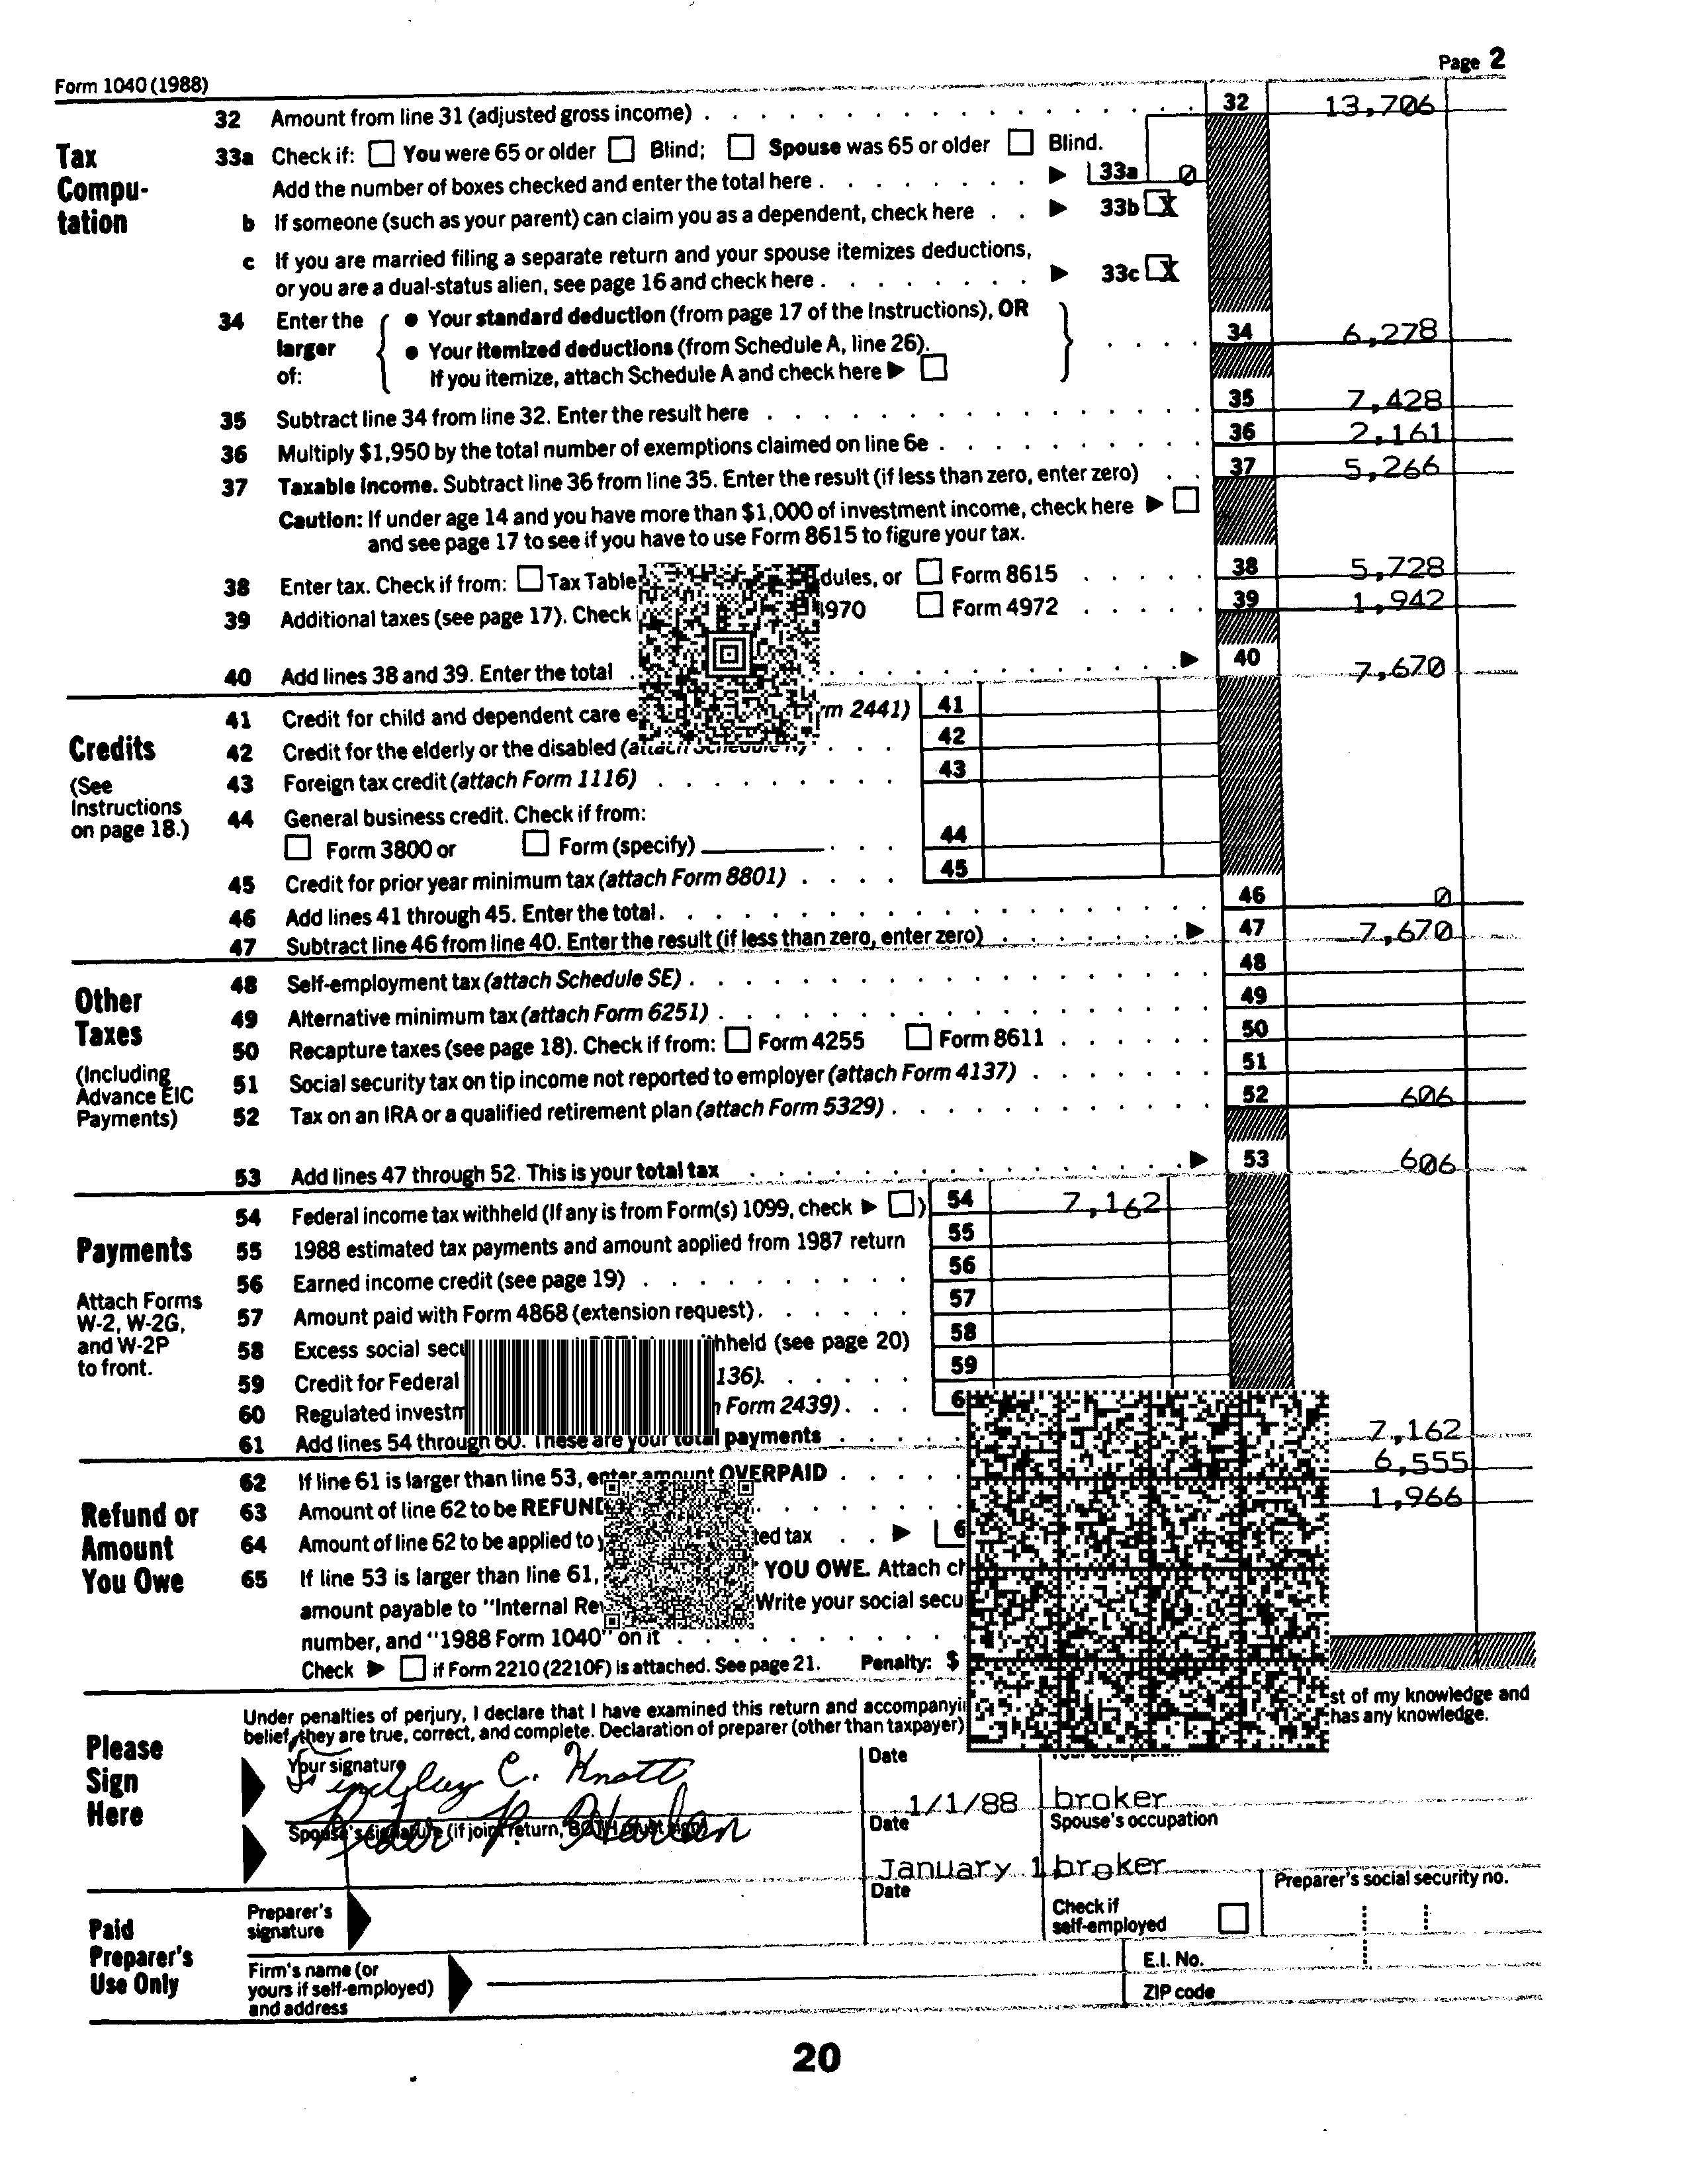 Form 1040 (1988) Page 2
32 Amount from line 31 (adjusted gross income) 32 13,706
Tax Compu- tation
33a Check if: You were 65 or older Blind; Spouse was 65 or older Blind.
Add the number of boxes checked and enter the total here 33a 0
b If someone (such as your parent) can claim you as a dependent, check here 33b X
c If you are married filing a separate return and your spouse itemizes deductions,
or you are a dual-status alien, see page 16 and check here 33c X
34 Enter the larger of:
• Your standard deduction (from page 17 of the Instructions), OR
• Your itemized deductions (from Schedule A, line 26). 34 6,278
If you itemize, attach Schedule A and check here
35 Subtract line 34 from line 32. Enter the result here 35 7,428
36 Multiply $1,950 by the total number of exemptions claimed on line 6e 36 2,161
37 Taxable income. Subtract line 36 from line 35. Enter the result (if less than zero, enter zero) 37 5,266
Caution: If under age 14 and you have more than $1,000 of investment income, check here
and see page 17 to see if you have to use Form 8615 to figure your tax.
38 Enter tax. Check if from: Tax Table dules, or Form 8615 38 5,728
39 Additional taxes (see page 17). Check 4970 Form 4972 39 1,942
40 Add lines 38 and 39. Enter the total 40 7,670
Credits
(See Instructions on page 18.)
41 Credit for child and dependent care e rm 2441) 41
42 Credit for the elderly or the disabled 42
43 Foreign tax credit (attach Form 1116) 43
44 General business credit. Check if from:
Form 3800 or Form (specify) 44
45 Credit for prior year minimum tax (attach Form 8801) 45
46 Add lines 41 through 45. Enter the total 46 0
47 Subtract line 46 from line 40. Enter the result (if less than zero, enter zero) 47 7,670
Other Taxes
(Including Advance EIC Payments)
48 Self-employment tax (attach Schedule SE) 48
49 Alternative minimum tax (attach Form 6251) 49
50 Recapture taxes (see page 18). Check if from: Form 4255 Form 8611 50
51 Social security tax on tip income not reported to employer (attach Form 4137) 51
52 Tax on an IRA or a qualified retirement plan (attach Form 5329) 52 606
53 Add lines 47 through 52. This is your total tax 53 606
Payments
Attach Forms W-2, W-2G, and W-2P to front.
54 Federal income tax withheld (If any is from Form(s) 1099, check ) 54 7,162
55 1988 estimated tax payments and amount applied from 1987 return 55
56 Earned income credit (see page 19) 56
57 Amount paid with Form 4868 (extension request) 57
58 Excess social secu thheld (see page 20) 58
59 Credit for Federal 136) 59
60 Regulated investm Form 2439) 6
61 Add lines 54 through 60. These are your total payments 7,162
Refund or Amount You Owe
62 If line 61 is larger than line 53, enter amount OVERPAID 6,555
63 Amount of line 62 to be REFUND 1,966
64 Amount of line 62 to be applied to ted tax 6
65 If line 53 is larger than line 61, YOU OWE. Attach ch
amount payable to "Internal Re Write your social secu
number, and "1988 Form 1040" on it
Check if Form 2210 (2210F) is attached. See page 21. Penalty: $
Please Sign Here
Under penalties of perjury, I declare that I have examined this return and accompanyi st of my knowledge and
belief, they are true, correct, and complete. Declaration of preparer (other than taxpayer) has any knowledge.
Your signature Date
C. Knott 1/1/88 broker
Spouse's signature (if joint return, BOTH must sign) Date Spouse's occupation
P. Harlan January 1 broker
Paid Preparer's Use Only
Preparer's signature Date Check if self-employed Preparer's social security no.
Firm's name (or yours if self-employed) and address E.I. No.
ZIP code
20